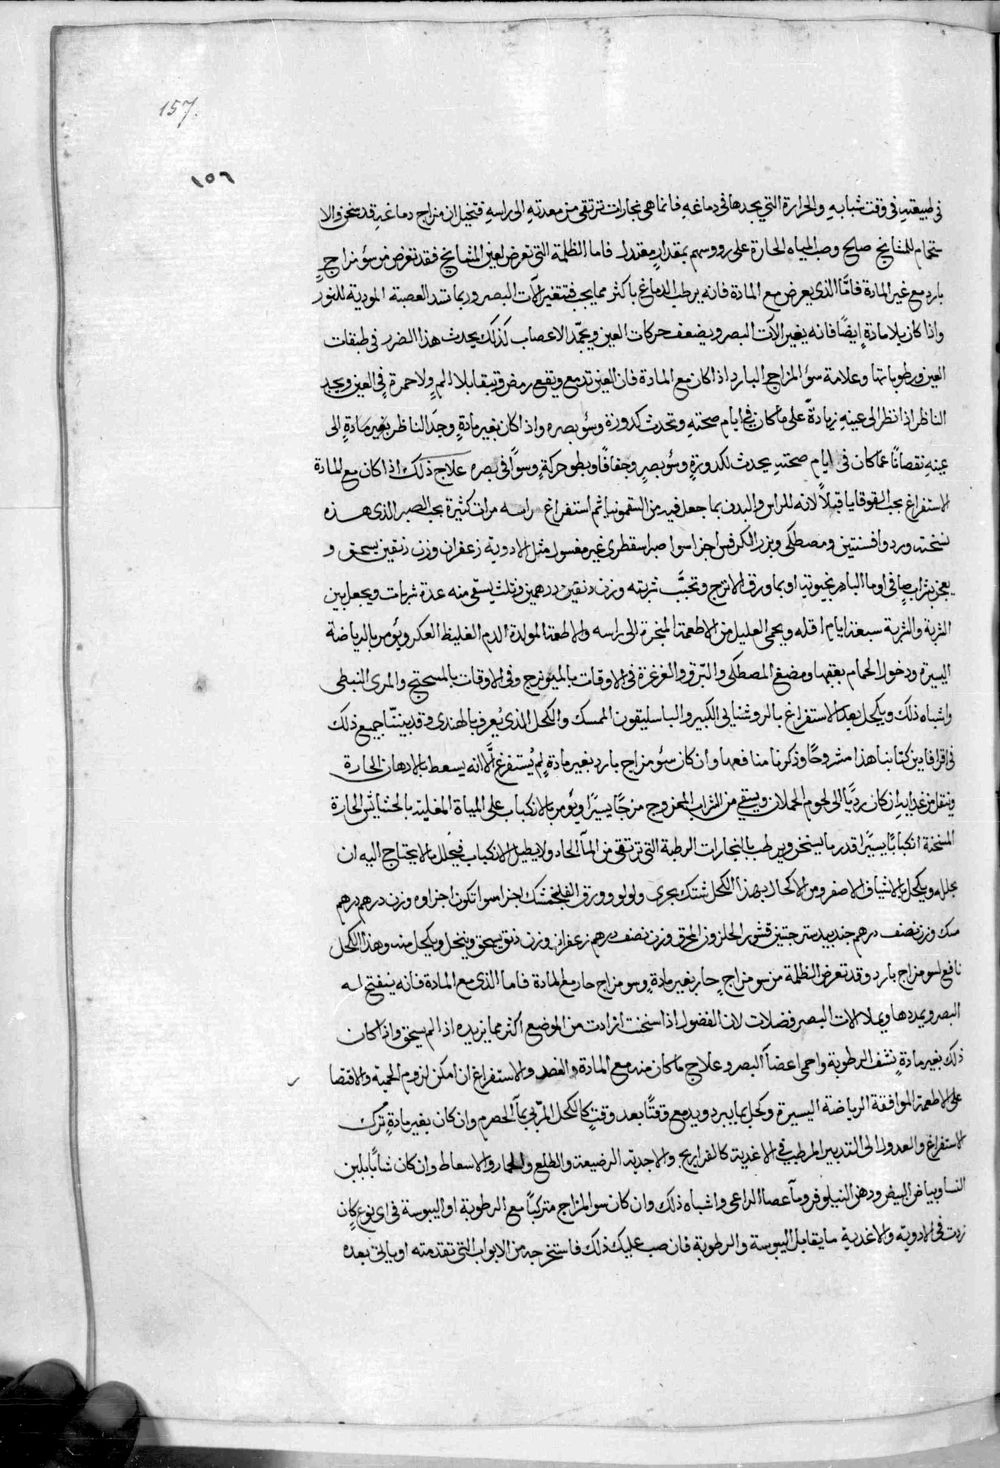 157.
١٥٦
في طبيعته في وقت شبابه والحرارة التي يجدها في دماغه فانما هي بخارات ترتقي من معدته الى راسه فتخيل ان مزاج دماغه قد سخن والا
ستحمام للمشايخ صلح وصب المياه الحارة على رووسهم بمقدار معتدل فاما الظلمة التي تعرض لعين المشايخ فقد تعرض من سؤ مزاج
بارد مع غير المادة فامّا الذي يعرض مع المادة فانه يرطب الدماغ باكثر مما يجب فتتغير آلات البصر وربما سد العصبة المودية للنور
واذا كان بلا مادة ايضًا فانه يغير الات البصر ويضعف حركات العين ويجمد الاعصاب كذلك يحدث هذا الضرر في طبقات
العين ورطوباتها وعلامة سؤ المزاج البارد اذا كان مع المادة فان العين تدمع ويقع رمص وثقل بلا الم ولا حمرة في العين ويجد
الناظر اذا نظر الى عينه زيادة على ما كان في ايام صحته وتحدث كدورة وسؤ بصره واذا كان بغير مادة وجد الناظر بغير مادة الى
عينه نقصانًا عما كان في ايام صحته يحدث لكدورة وسؤ بصر وجفافًا وبطو حركة وسوًا في بصره علاج ذلك اذا كان مع المادة
الاستفراغ بحب القوقايا قبلًا لانه للراس والبدن بما جعل فيه من السقمونيا ثم استفراغ راسه مرات كثيرة بحب الصبر الذي هذه
نسخته ورد وافسنتين ومصطكى وبزر الكرفس اجزا سوا صبر اسقطري غير مغسول مثل الادوية زعفران وزن دنقين يسحق و
يعجن بشراب صافي او ما الباذرنجبويه او بما ورق الاترج وتحبّب شربته وزن دنقين درهمين وثلث يسقى منه عدة شربات ويجعل بين
الشربة والشربة سبعة ايام اقله ويحمى العليل من الاطعمة المبخرة الى راسه والاطعمة المولدة الدم الغليظ العكر ويؤمر بالرياضة
اليسيرة ودخول الحمام بعقبها ومضغ المصطكى والتبزق والغرغرة في الاوقات بالميويزج وفي الاوقات بالسكنجبين والمري النبطي
واشباه ذلك ويكحل بعد الاستفراغ بالروشنايي الكبير والباسليقون الممسك والكحل الذي يعرف بالهندي وقد بيّنّا جميع ذلك
في اقرافادين كتابنا هذا مشروحًا وذكرنا منافعها وان كان سؤ مزاج بارد بغير مادة لم يُستفرغ الّا انه يسعط بالادهان الحارة
وينقل من غذايه ان كان رديًا الى لحوم الحملان ويسقى من الشراب الممزوج مزجًا يسيرًا ويؤمر بالانكباب على المياة المغلية بالحشايش الحارة
المسخنة انكبابًا يسيرًا قدر ما يسخن ويرطب بالبخارات الرطبة التي ترتقي من المآ الحار ولا يطيل الانكباب فيحلل ما لا يحتاج اليه ان
يحلله ويكحل بالاشياف الاصفر ومن الاكحال بهذا الكحل شنك بحري ولولو وورق الفلنجمشك اجزا سوا تكون اجزاوه وزن درهم درهم
مسك وزن نصف درهم جندبيدستر حبتين قشور الحلزون المحرق وزن نصف درهم زعفران وزن دنق يسحق وينخل ويكحل منه وهذا الكحل
نافع لسو مزاج بارد وقد تعرض الظلمة من سو مزاج حار بغير مادة وسو مزاج حار مع المادة فاما الذي مع المادة فانه ينفتح له
البصر ويمددها ويملا الات البصر فضلات لان الفضول اذا سخنت ازدادت من الموضع اكثر مما يزيده اذا لم يسحق واذا كان
ذلك بغير مادة نشف الرطوبة واحمى اعضآ البصر وعلاج ما كان منه مع المادة والفصد والاستفراغ ان امكن لزوم الحمية والاقتصا
على الاطعمة الموافقة الرياضة اليسيرة وكحل بما يبرد ويدمع وقتًا بعد وقت كالكحل المربّى بمآ الحصرم وان كان بغير مادة ترك
الاستفراغ والعدول الى التدبير المرطب في الاغذية كالفراريج والاجدية الرضيعة والطلع والجمار والاسعاط وان كان شابًا بلبن
النسا وبياض البيض ودهن النيلوفر ومآ عصا الراعي واشباه ذلك وان كان سو المزاج متركبًا مع الرطوبة او اليبوسة في اي نوع كان
زدت في الادوية والاغذية ما يقابل اليبوسة والرطوبة فان صب عليك ذلك فاستخرجه من الابواب التي تقدمته او ياتي بعده